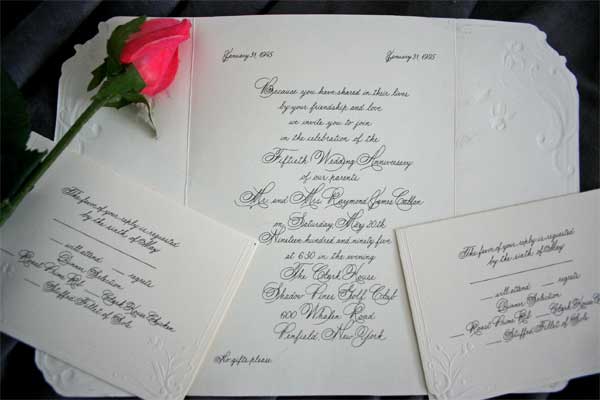 January 31, 1945
January 31, 1945
Because you have shared in their lives
by your friendship and love
we invite you to join
in the celebration of the
Fiftieth Wedding Anniversary
of our parents
Mr. and Mrs. Raymond James
on Saturday, May 20th
Nineteen hundred and ninety five
at 6:30 in the evening
The Clark House
Shadow Pines Golf Club
600 Whalen Road
Penfield, New York
No gifts please
The favor of your reply is requested
by the sixth of May
will attend regrets
Dinner Selection
Roast Prime Rib Clark House Chicken
Stuffed Fillet of Sole
The favor of your reply is requested
by the sixth of May
will attend regrets
Dinner Selection
Roast Prime Rib Clark House
Stuffed Fillet of Sole